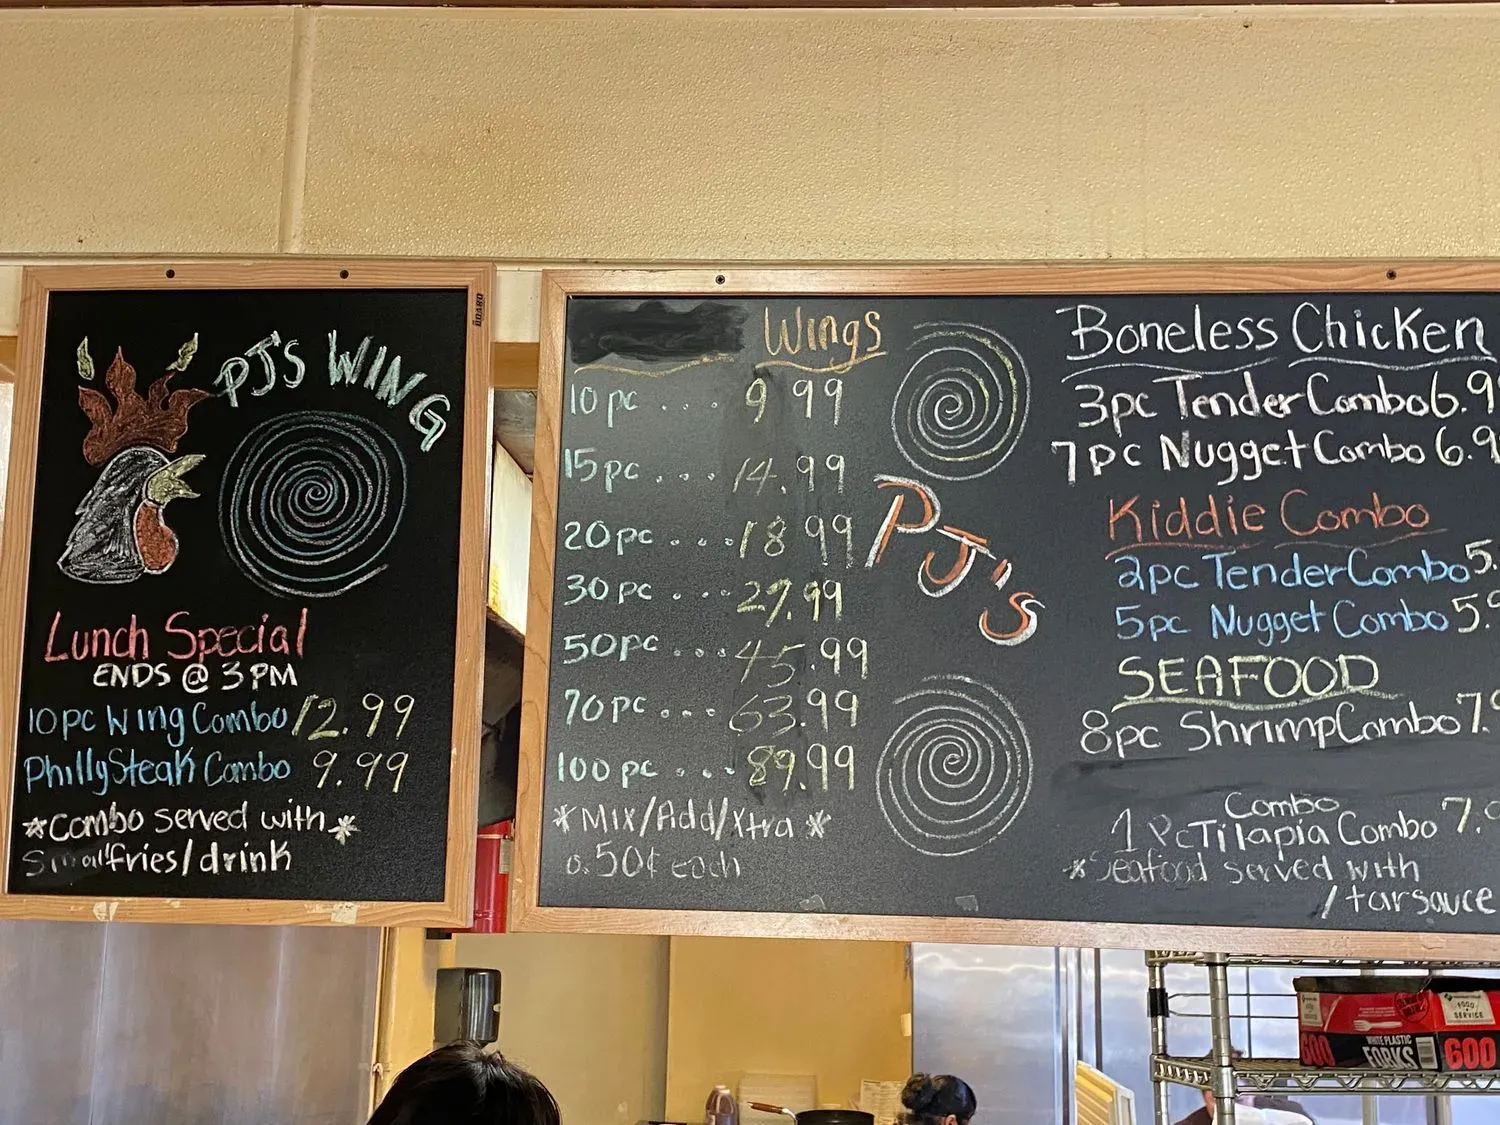 BOARD
PJ'S WING
Lunch Special
ENDS @ 3 PM
10 pc Wing Combo 12.99
Philly Steak Combo 9.99
*Combo served with*
Small fries/drink
Wings
10 pc ... 9.99
15 pc ... 14.99
20 pc ... 18.99
30 pc ... 27.99
50 pc ... 45.99
70 pc ... 63.99
100 pc ... 89.99
*Mix/Add/Xtra*
0.50¢ each
PJ's
Boneless Chicken
3pc Tender Combo 6.9
7pc Nugget Combo 6.9
Kiddie Combo
2pc Tender Combo 5.
5pc Nugget Combo 5.9
SEAFOOD
8pc Shrimp Combo 7.9
Combo
1 Pc Tilapia Combo 7.9
*Seafood served with
/tarsauce
FOOD
SERVICE
600
WHITE PLASTIC
FORKS
600